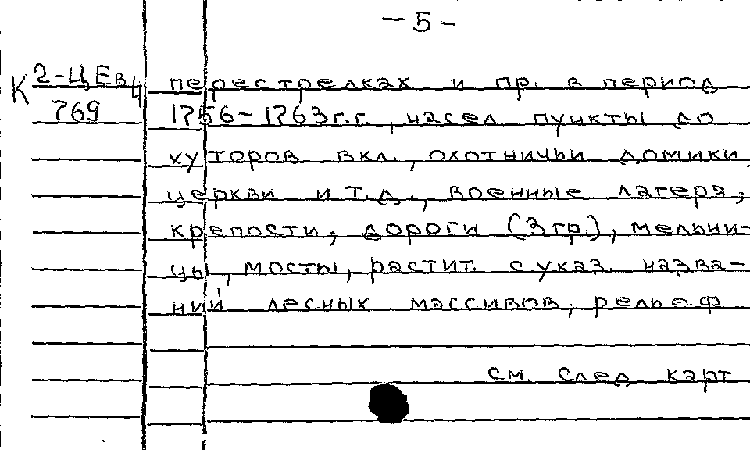 - 5 -
К 2-Ц.Ев 4
769
перестрелках и пр. в период
1756-1763 г.г., насел. пункты до
хуторов вкл., охотничьи домики,
церкви и т.д., военные лагеря,
крепости, дороги (3 гр.), мельни-
цы, мосты, растит. с указ. назва-
ний лесных массивов, рельеф
см. след. карт